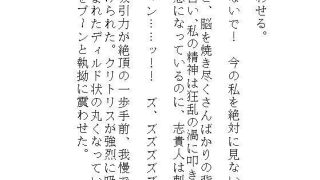 わせる。
ないで！　今の私を絶対に見ない
、脳を焼き尽くさんばかりの背
い、私の精神は狂乱の渦に叩き
態になっているのに、志貴人は刺
ン……ッ！！　ズ、ズズズズ
吸引力が絶頂の一歩手前、我慢で
けられた。クリトリスが強烈に吸
まれたディルド状の丸くなってい
をブーンと執拗に震わせた。